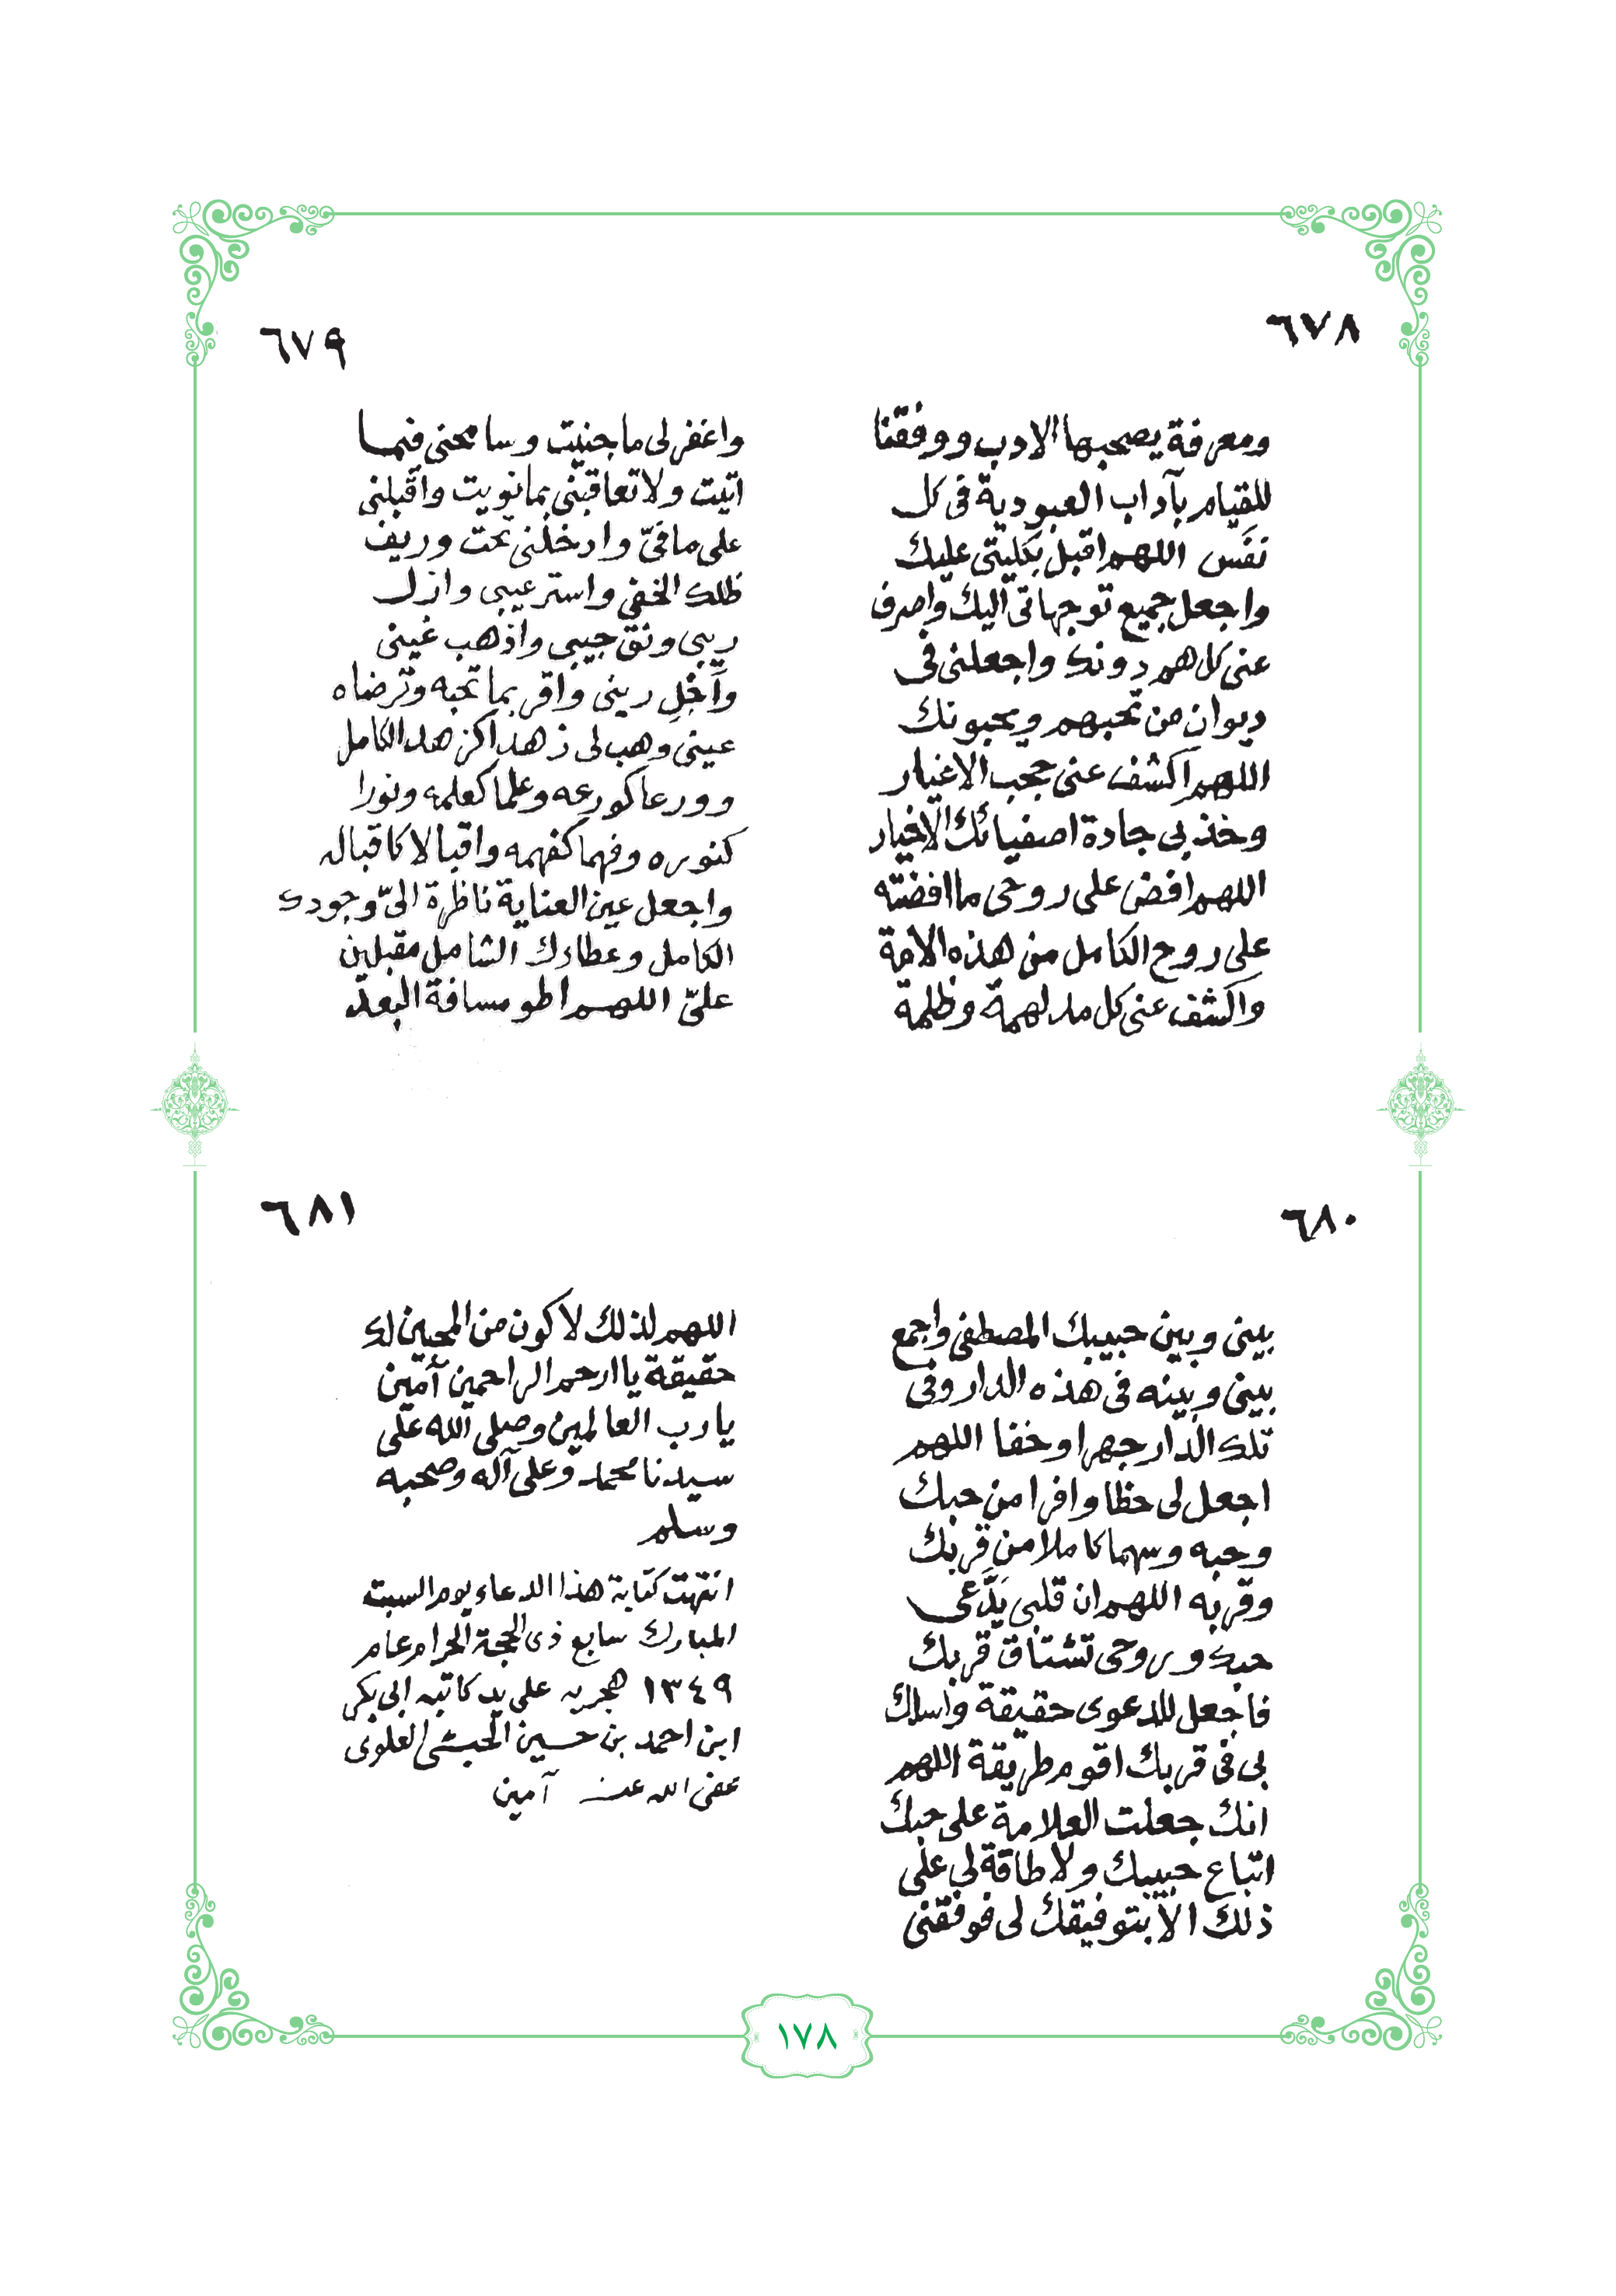 ٦٧٨
ومعرفة يصحبها الادب ووفقنا
للقيام بآداب العبودية فى كل
نفَس اللهم اقبل بكليتى عليك
واجعل جميع توجهاتى اليك واصرف
عنى كل هم دونك واجعلنى فى
ديوان من تحبهم ويحبونك
اللهم اكشف عنى حجب الاغيار
وخذ بى جادة اصفيائك الاخيار
اللهم افض على روحى ما افضته
على روح الكامل من هذه الامة
واكشف عنى كل مدلهمة وظلمة
٦٧٩
واغفر لى ما جنيت وسامحنى فيما
اتيت ولا تعاقبنى بما نويت واقبلنى
على ما فيّ وادخلنى تحت وريف
ظلك الخفي واستر عيبى وازل
ريبى ونق جيبى واذهب غينى
وأجْلِ رينى واقر بما تحبه وترضاه
عينى وهب لى زهدا كزهد الكامل
وورعا كورعه وعلما كعلمه ونورا
كنوره وفهما كفهمه واقبالا كاقباله
واجعل عين العناية ناظرة اليّ وجودك
الكامل وعطاءك الشامل مقبلين
عليّ اللهم اطو مسافة البعد
٦٨٠
بينى وبين حبيبك المصطفى واجمع
بينى وبينه فى هذه الدار وفى
تلك الدار جهرا وخفا اللهم
اجعل لى حظا وافرا من حبك
وحبه وسهما كاملا من قربك
وقربه اللهم ان قلبى يَدَّعى
حبك وروحى تشتاق قربك
فاجعل للدعوى حقيقة واسلك
بى فى قربك اقوم طريقة اللهم
انك جعلت العلامة على حبك
اتباع حبيبك ولا طاقة لى على
ذلك الا بتوفيقك لى فوفقنى
٦٨١
اللهم لذلك لاكون من المحبين لك
حقيقة يا ارحم الراحمين آمين
يا رب العالمين وصلى الله على
سيدنا محمد وعلى آله وصحبه
وسلم
انتهت كتابة هذا الدعاء يوم السبت
المبارك سابع ذى الحجة الحرام عام
١٣٤٩ هجريه على يد كاتبه ابى بكر
ابن احمد بن حسين الحبشى العلوى
عفى الله عنه آمين
١٧٨